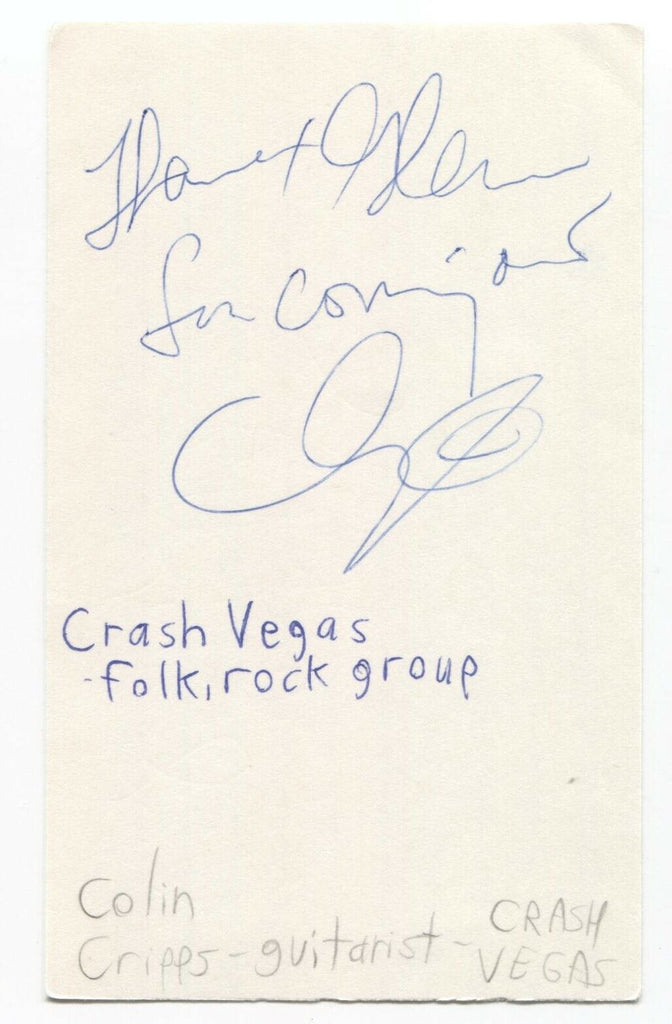 Thanx Glenn
for coming out
Crash Vegas
-folk, rock group
Colin
Cripps - guitarist - CRASH
VEGAS